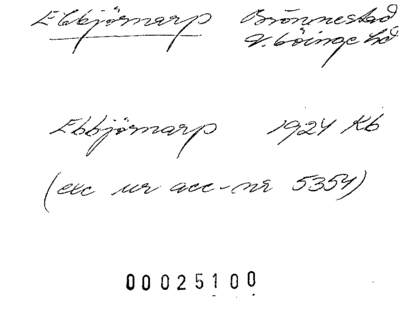 Ebbjörnarp Brönnestad
V. Göinge hd
Ebbjörnarp 1924 Kb
(exc ur acc-nr 5354)
00025100